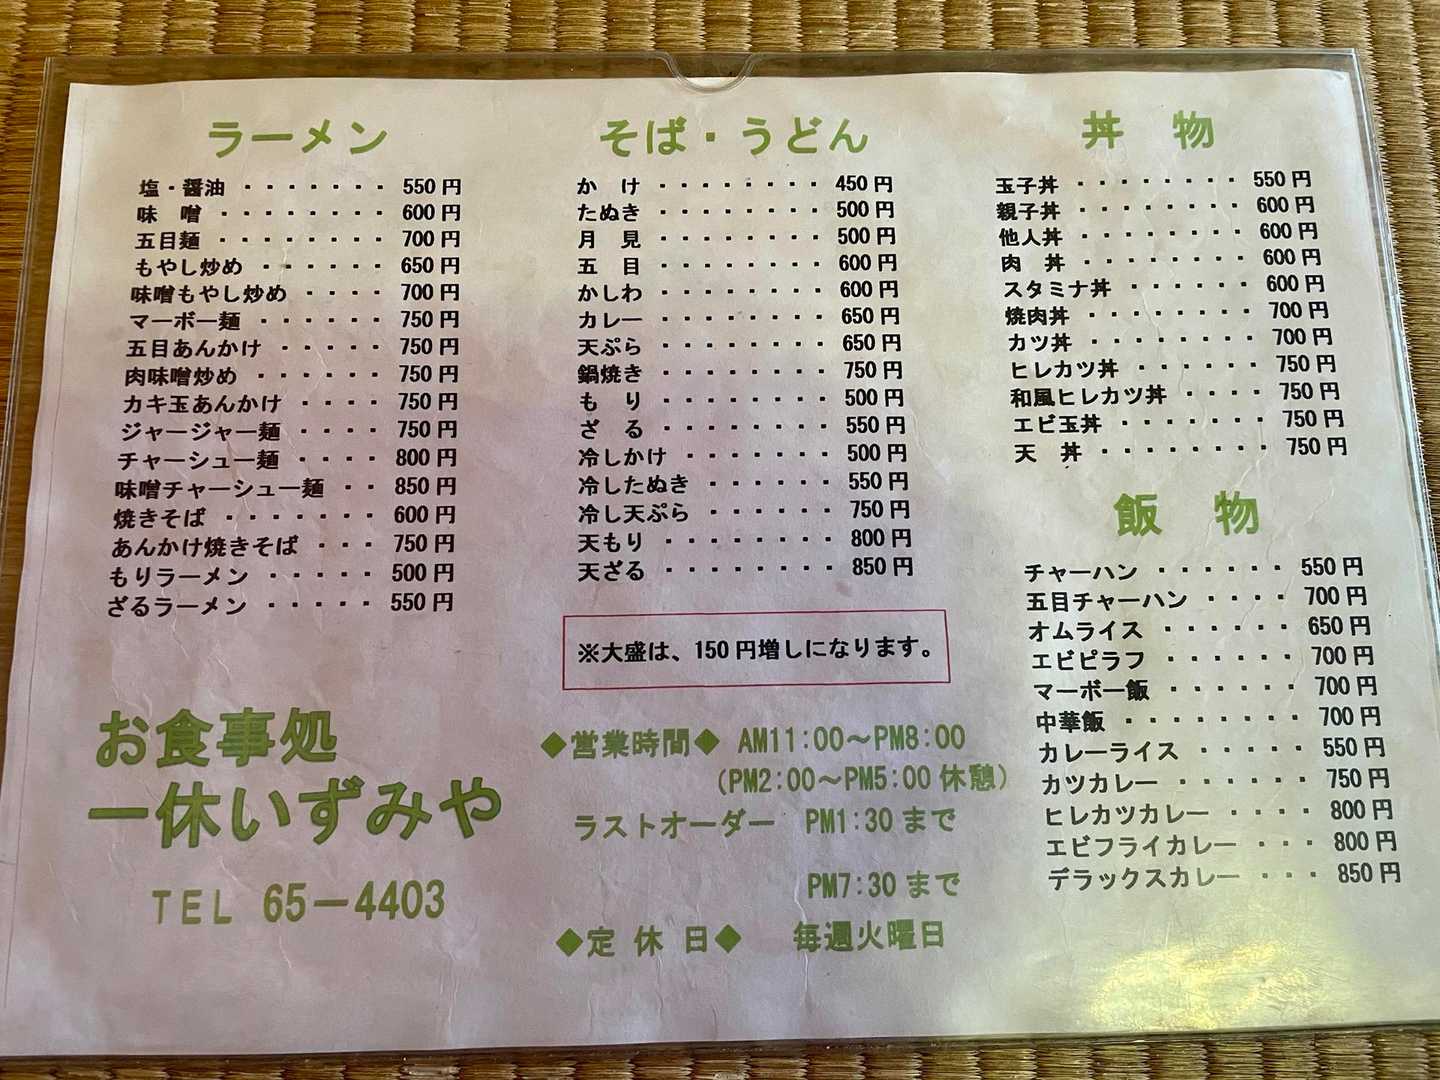 ラーメン
塩・醤油 ・・・・・・・ 550円
味　噌 ・・・・・・・・ 600円
五目麺 ・・・・・・・・ 700円
もやし炒め ・・・・・・ 650円
味噌もやし炒め ・・・・ 700円
マーボー麺 ・・・・・・ 750円
五目あんかけ ・・・・・ 750円
肉味噌炒め ・・・・・・ 750円
カキ玉あんかけ ・・・・ 750円
ジャージャー麺 ・・・・ 750円
チャーシュー麺 ・・・・ 800円
味噌チャーシュー麺 ・・ 850円
焼きそば ・・・・・・・ 600円
あんかけ焼きそば ・・・ 750円
もりラーメン ・・・・・ 500円
ざるラーメン ・・・・・ 550円
お食事処
一休いずみや
TEL 65－4403
そば・うどん
か　け ・・・・・・・・ 450円
たぬき ・・・・・・・・ 500円
月　見 ・・・・・・・・ 500円
五　目 ・・・・・・・・ 600円
かしわ ・・・・・・・・ 600円
カレー ・・・・・・・・ 650円
天ぷら ・・・・・・・・ 650円
鍋焼き ・・・・・・・・ 750円
も　り ・・・・・・・・ 500円
ざ　る ・・・・・・・・ 550円
冷しかけ ・・・・・・・ 500円
冷したぬき ・・・・・・ 550円
冷し天ぷら ・・・・・・ 750円
天もり ・・・・・・・・ 800円
天ざる ・・・・・・・・ 850円
※大盛は、150円増しになります。
◆営業時間◆ AM11:00～PM8:00
(PM2:00～PM5:00休憩)
ラストオーダー PM1:30まで
PM7:30まで
◆定 休 日◆ 毎週火曜日
丼　物
玉子丼 ・・・・・・・・ 550円
親子丼 ・・・・・・・・ 600円
他人丼 ・・・・・・・・ 600円
肉　丼 ・・・・・・・・ 600円
スタミナ丼 ・・・・・・ 600円
焼肉丼 ・・・・・・・・ 700円
カツ丼 ・・・・・・・・ 700円
ヒレカツ丼 ・・・・・・ 750円
和風ヒレカツ丼 ・・・・ 750円
エビ玉丼 ・・・・・・・ 750円
天　丼 ・・・・・・・・ 750円
飯　物
チャーハン ・・・・・・ 550円
五目チャーハン ・・・・ 700円
オムライス ・・・・・・ 650円
エビピラフ ・・・・・・ 700円
マーボー飯 ・・・・・・ 700円
中華飯 ・・・・・・・・ 700円
カレーライス ・・・・・ 550円
カツカレー ・・・・・・ 750円
ヒレカツカレー ・・・・ 800円
エビフライカレー ・・・ 800円
デラックスカレー ・・・ 850円